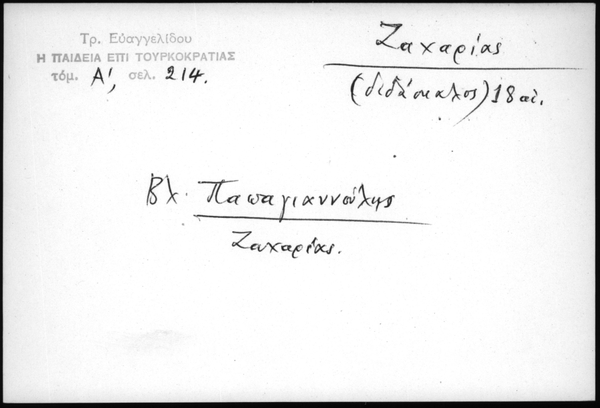 Τρ. Εὐαγγελίδου
Η ΠΑΙΔΕΙΑ ΕΠΙ ΤΟΥΡΚΟΚΡΑΤΙΑΣ
τόμ. Α', σελ. 214.
Ζαχαρίας
(διδάσκαλος) 18 αἰ.
Βλ. Παπαγιαννούλης
Ζαχαρίας.